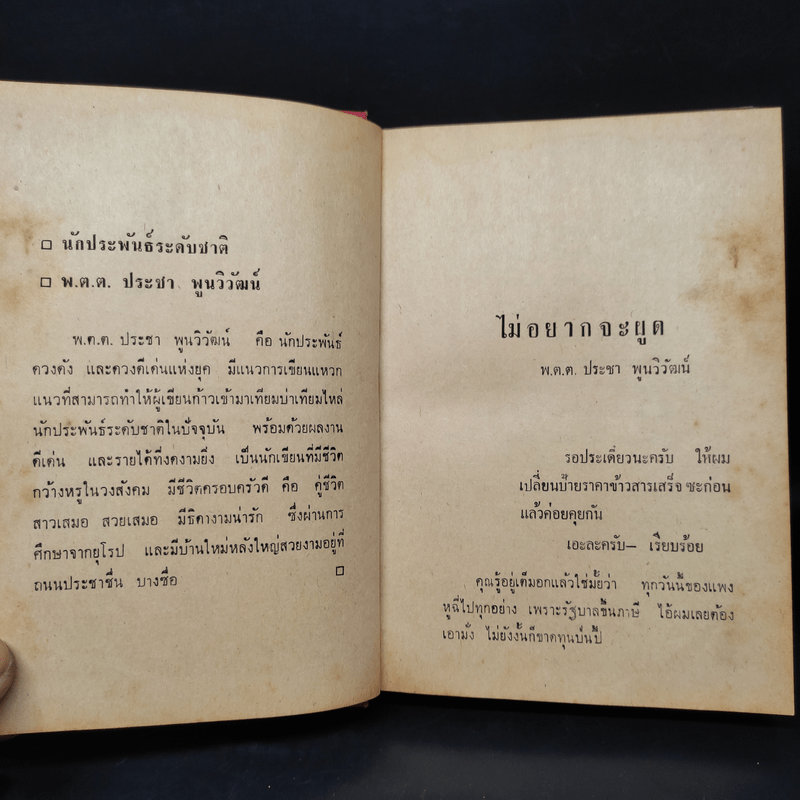 □ นักประพันธ์ระดับชาติ
□ พ.ต.ต. ประชา พูนวิวัฒน์
พ.ต.ต. ประชา พูนวิวัฒน์ คือ นักประพันธ์
ดวงดัง และดวงดีเด่นแห่งยุค มีแนวการเขียนแหวก
แนวที่สามารถทำให้ผู้เขียนก้าวเข้ามาเทียมบ่าเทียมไหล่
นักประพันธ์ระดับชาติในปัจจุบัน พร้อมด้วยผลงาน
ดีเด่น และรายได้ที่งดงามยิ่ง เป็นนักเขียนที่มีชีวิต
กว้างหรูในวงสังคม มีชีวิตครอบครัวดี คือ คู่ชีวิต
สาวเสมอ สวยเสมอ มีธิดางามน่ารัก ซึ่งผ่านการ
ศึกษาจากยุโรป และมีบ้านใหม่หลังใหญ่สวยงามอยู่ที่
ถนนประชาชื่น บางซื่อ □
ไม่อยากจะผูด
พ.ต.ต. ประชา พูนวิวัฒน์
รอประเดี๋ยวนะครับ ให้ผม
เปลี่ยนป้ายราคาข้าวสารเสร็จซะก่อน
แล้วค่อยคุยกัน
เอะละครับ— เรียบร้อย
คุณรู้อยู่เต็มอกแล้วใช่มั้ยว่า ทุกวันนี้ของแพง
หูฉี่ไปทุกอย่าง เพราะรัฐบาลขึ้นภาษี ไอ้ผมเลยต้อง
เอามั่ง ไม่ยังงั้นก็ขาดทุนป่นปี้